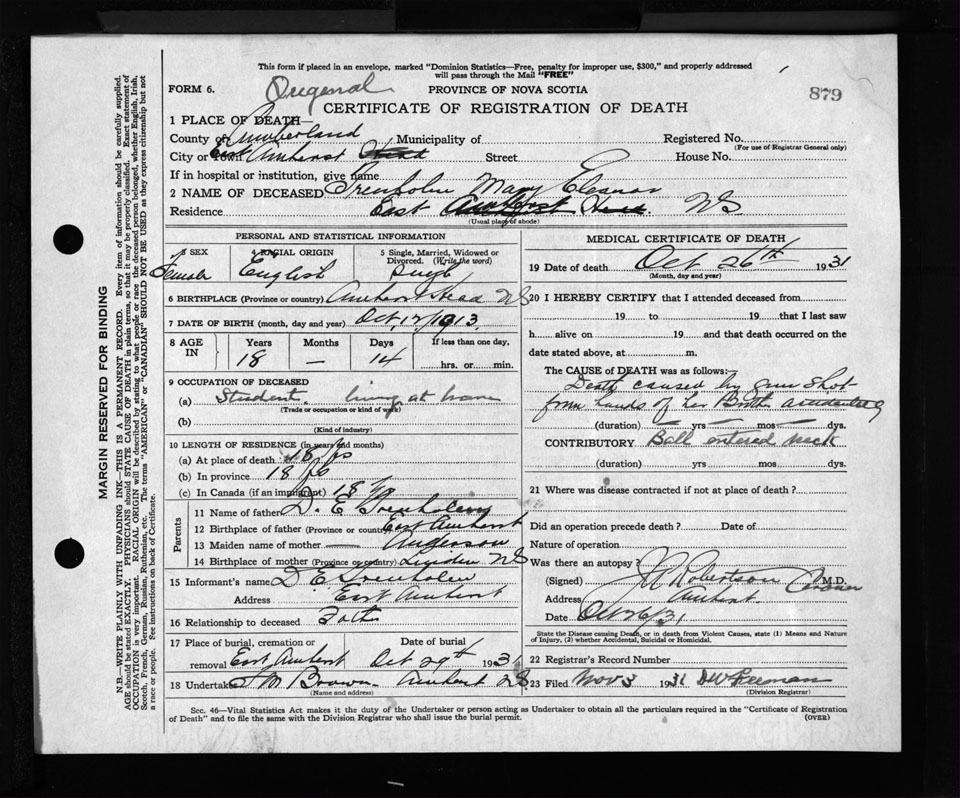 This form if placed in an envelope, marked "Dominion Statistics—Free, penalty for improper use, $300," and properly addressed
will pass through the Mail "FREE"
FORM 6. Original PROVINCE OF NOVA SCOTIA 879
CERTIFICATE OF REGISTRATION OF DEATH
1 PLACE OF DEATH—
County of Cumberland Municipality of Registered No.
(For use of Registrar General only)
City or Town East Amherst Head Street House No.
If in hospital or institution, give name
2 NAME OF DECEASED Trenholm Mary Eleanor
Residence East Amherst Head. NS
(Usual place of abode)
PERSONAL AND STATISTICAL INFORMATION
3 SEX 4 RACIAL ORIGIN 5 Single, Married, Widowed or Divorced. (Write the word)
Female English Single
6 BIRTHPLACE (Province or country) Amherst Head NS
7 DATE OF BIRTH (month, day and year) Oct 12/1913
8 AGE IN Years Months Days If less than one day,
18 — 14 hrs. or min.
9 OCCUPATION OF DECEASED
(a) Student. living at home
(Trade or occupation or kind of work)
(b)
(Kind of industry)
10 LENGTH OF RESIDENCE (in years and months)
(a) At place of death 18 yrs
(b) In province 18 yrs
(c) In Canada (if an immigrant) 18 yrs
Parents
11 Name of father D. E Trenholm
12 Birthplace of father (Province or country) East Amherst
13 Maiden name of mother Anderson
14 Birthplace of mother (Province or country) NS
15 Informant's name D E Trenholm
Address East Amherst
16 Relationship to deceased Father
17 Place of burial, cremation or removal Date of burial
East Amherst Oct 29th 1931
18 Undertaker Brown Amherst NS
(Name and address)
MEDICAL CERTIFICATE OF DEATH
19 Date of death Oct 26th 1931
(Month, day and year)
20 I HEREBY CERTIFY that I attended deceased from
19 to 19 that I last saw
h alive on 19 and that death occurred on
date stated above, at m.
The CAUSE of DEATH was as follows:
Death caused by gun shot
from hands of her Brother accidentally
(duration) yrs mos dys.
CONTRIBUTORY Ball entered neck
(duration) yrs mos dys.
21 Where was disease contracted if not at place of death?
Did an operation precede death? Date of
Nature of operation
Was there an autopsy?
(Signed) Robertson Coroner M.D.
Address Amherst.
Date Oct 26/31
State the Disease causing Death, or in death from Violent Causes, state (1) Means and Nature
of Injury, (2) whether Accidental, Suicidal or Homicidal.
22 Registrar's Record Number
23 Filed Nov 3 1931 Freeman
(Division Registrar)
Sec. 46—Vital Statistics Act makes it the duty of the Undertaker or person acting as Undertaker to obtain all the particulars required in the "Certificate of Registration
of Death" and to file the same with the Division Registrar who shall issue the burial permit. (OVER)
MARGIN RESERVED FOR BINDING
N.B.—WRITE PLAINLY WITH UNFADING INK—THIS IS A PERMANENT RECORD. Every item of information should be carefully supplied.
AGE should be stated EXACTLY. PHYSICIANS should STATE CAUSE OF DEATH in plain terms, so that it may be properly classified. Exact statement of
OCCUPATION is very important. RACIAL ORIGIN will be described by stating to what people or race the deceased person belonged, whether English, Irish,
Scotch, French, German, Russian, Ruthenian, etc. The terms "AMERICAN" or "CANADIAN" SHOULD NOT BE USED as they express citizenship but not
a race or people. See instructions on back of Certificate.